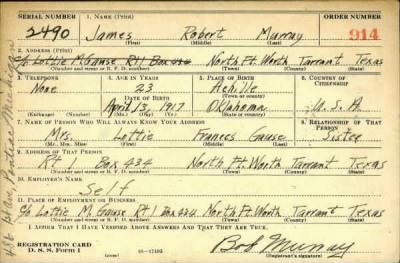 SERIAL NUMBER 1. NAME (Print) ORDER NUMBER
2490 James Robert Murray 914
(First) (Middle) (Last)
2. ADDRESS (Print)
c/o Lottie M. Gause Rt 1 Box 434 North Ft. Worth Tarrant Texas
(Number and street or R. F. D. number) (Town) (County) (State)
3. TELEPHONE 4. AGE IN YEARS 5. PLACE OF BIRTH 6. COUNTRY OF CITIZENSHIP
None 23 Achille
DATE OF BIRTH (Town or county)
April 13, 1917 Oklahoma U.S.A.
(Exchange) (Number) (Mo.) (Day) (Yr.) (State or country)
7. NAME OF PERSON WHO WILL ALWAYS KNOW YOUR ADDRESS 8. RELATIONSHIP OF THAT PERSON
Mrs. Lottie Frances Gause Sister
(Mr., Mrs., Miss) (First) (Middle) (Last)
9. ADDRESS OF THAT PERSON
Rt 1 Box 434 North Ft. Worth Tarrant Texas
(Number and street or R. F. D. number) (Town) (County) (State)
10. EMPLOYER'S NAME
Self
11. PLACE OF EMPLOYMENT OR BUSINESS
c/o Lottie M. Gause Rt 1 Box 434 North Ft. Worth Tarrant Texas
(Number and street or R. F. D. number) (Town) (County) (State)
I AFFIRM THAT I HAVE VERIFIED ABOVE ANSWERS AND THAT THEY ARE TRUE.
REGISTRATION CARD
D. S. S. Form 1 (over) Bob Murray
(Registrant's signature)
Pontiac Michigan